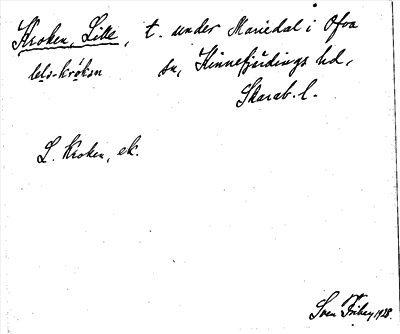 Kroken, Lille, t. under Mariedal i Ova
lels-krókan sn, Kinnefjärdings hd,
Skarab. l.
L. Kroken, ek.
Sven Friberg 1928.